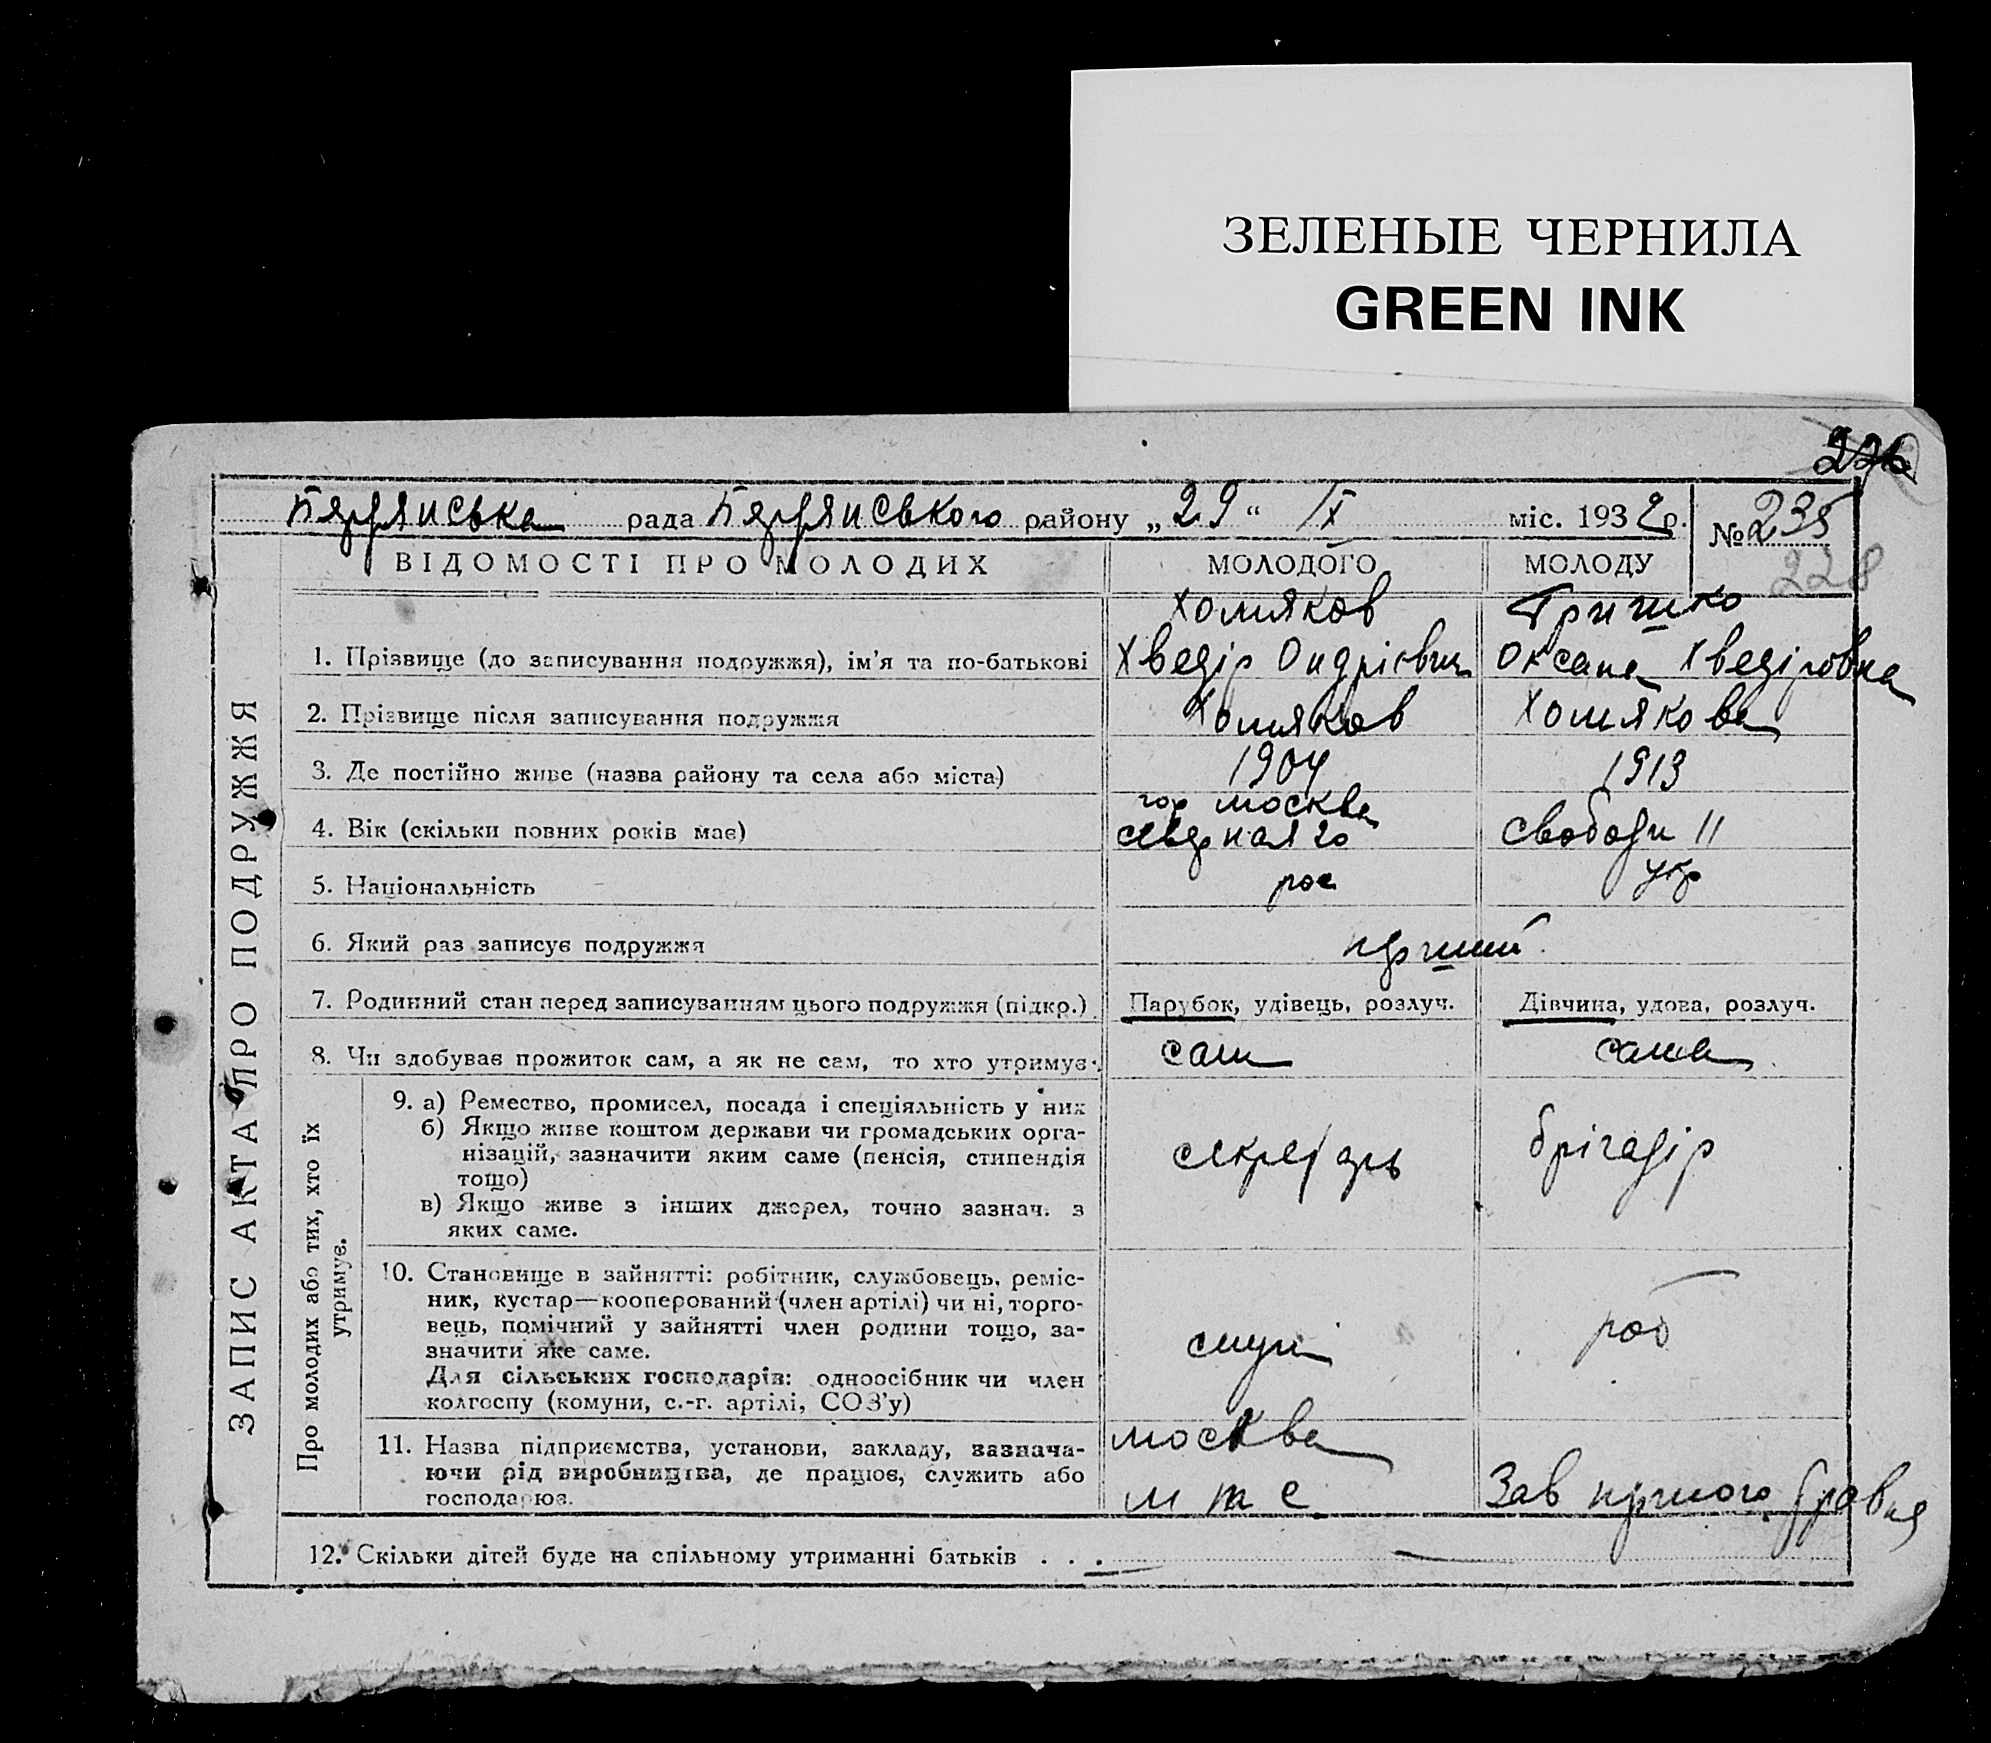 ЗЕЛЕНЫЕ ЧЕРНИЛА
GREEN INK
226
рада району „29“ IX міс. 1932 р. № 235
228
ЗАПИС АКТА ПРО ПОДРУЖЖЯ
ВІДОМОСТІ ПРО МОЛОДИХ МОЛОДОГО МОЛОДУ
Хомяков Гришко
1. Прізвище (до записування подружжя), ім'я та по-батькові Хведір Ондрієвич Оксана Хведіровна
2. Прізвище після записування подружжя Хомяков Хомякова
3. Де постійно живе (назва району та села або міста) 1904 1913
гор Москва
4. Вік (скільки повних років має) 20 Свободи 11
5. Національність рос укр
6. Який раз записує подружжя перший
7. Родинний стан перед записуванням цього подружжя (підкр.) Парубок, удівець, розлуч. Дівчина, удова, розлуч.
8. Чи здобував прожиток сам, а як не сам, то хто утримує. сам сама
Про молодих або тих, хто їх
утримує.
9. а) Ремество, промисел, посада і спеціяльність у них
б) Якщо живе коштом держави чи громадських орга-
нізацій, зазначити яким саме (пенсія, стипендія
тощо)
в) Якщо живе з інших джерел, точно зазнач. з
яких саме.
секретарь брігадір
10. Становище в зайнятті: робітник, службовець, реміс-
ник, кустар—кооперований (член артілі) чи ні, торго-
вець, помічний у зайнятті член родини тощо, за-
значити яке саме.
Для сільських господарів: одноосібник чи член
колгоспу (комуни, с.-г. артілі, СОЗ'у)
роб
11. Назва підприємства, установи, закладу, зазнача-
ючи рід виробництва, де працює, служить або
господарює.
Москва
М т с Зав першого Травня
12. Скільки дітей буде на спільному утриманні батьків . . . —